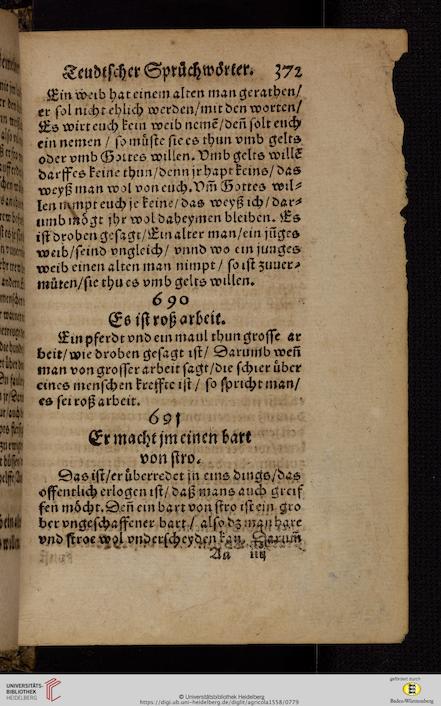 Teudtscher Sprüchwörter. 372
Ein weib hat einem alten man gerathen/
er sol nicht ehlich werden/mit den worten/
Es wirt euch kein weib nemẽ/deñ solt euch
ein nemen / so müste sie es thun vmb gelts
oder vmb Gottes willen. Vmb gelts willẽ
darff es keine thun/denn jr hapt keins/das
weyß man wol von euch. Vm̃ Gottes wil-
len nimpt euch je keine/das weyß ich/dar-
umb mögt jhr wol daheymen bleiben. Es
ist droben gesagt/Ein alter man/ein jũges
weib/seind vngleich/ vnnd wo ein junges
weib einen alten man nimpt/ so ist zuuer-
müten/sie thu es vmb gelts willen.
690
Es ist roß arbeit.
Ein pferdt vnd ein maul thun grosse ar
beit/wie droben gesagt ist/ Darumb weñ
man von grosser arbeit sagt/die schier über
eines menschen kreffte ist/ so spricht man/
es sei roß arbeit.
691
Er macht jm einen bart
von stro.
Das ist/er überredet jn eins dings/das
offentlich erlogen ist/daß mans auch greif
fen möcht. Deñ ein bart von stro ist ein gro
ber vngeschaffener bart/ also dz man hare
vnd stroe wol vnderscheyden kan. Darum̃
Aa iiij
UNIVERSITÄTS-
BIBLIOTHEK
HEIDELBERG
© Universitätsbibliothek Heidelberg
https://digi.ub.uni-heidelberg.de/diglit/agricola1558/0779
gefördert durch
Baden-Württemberg